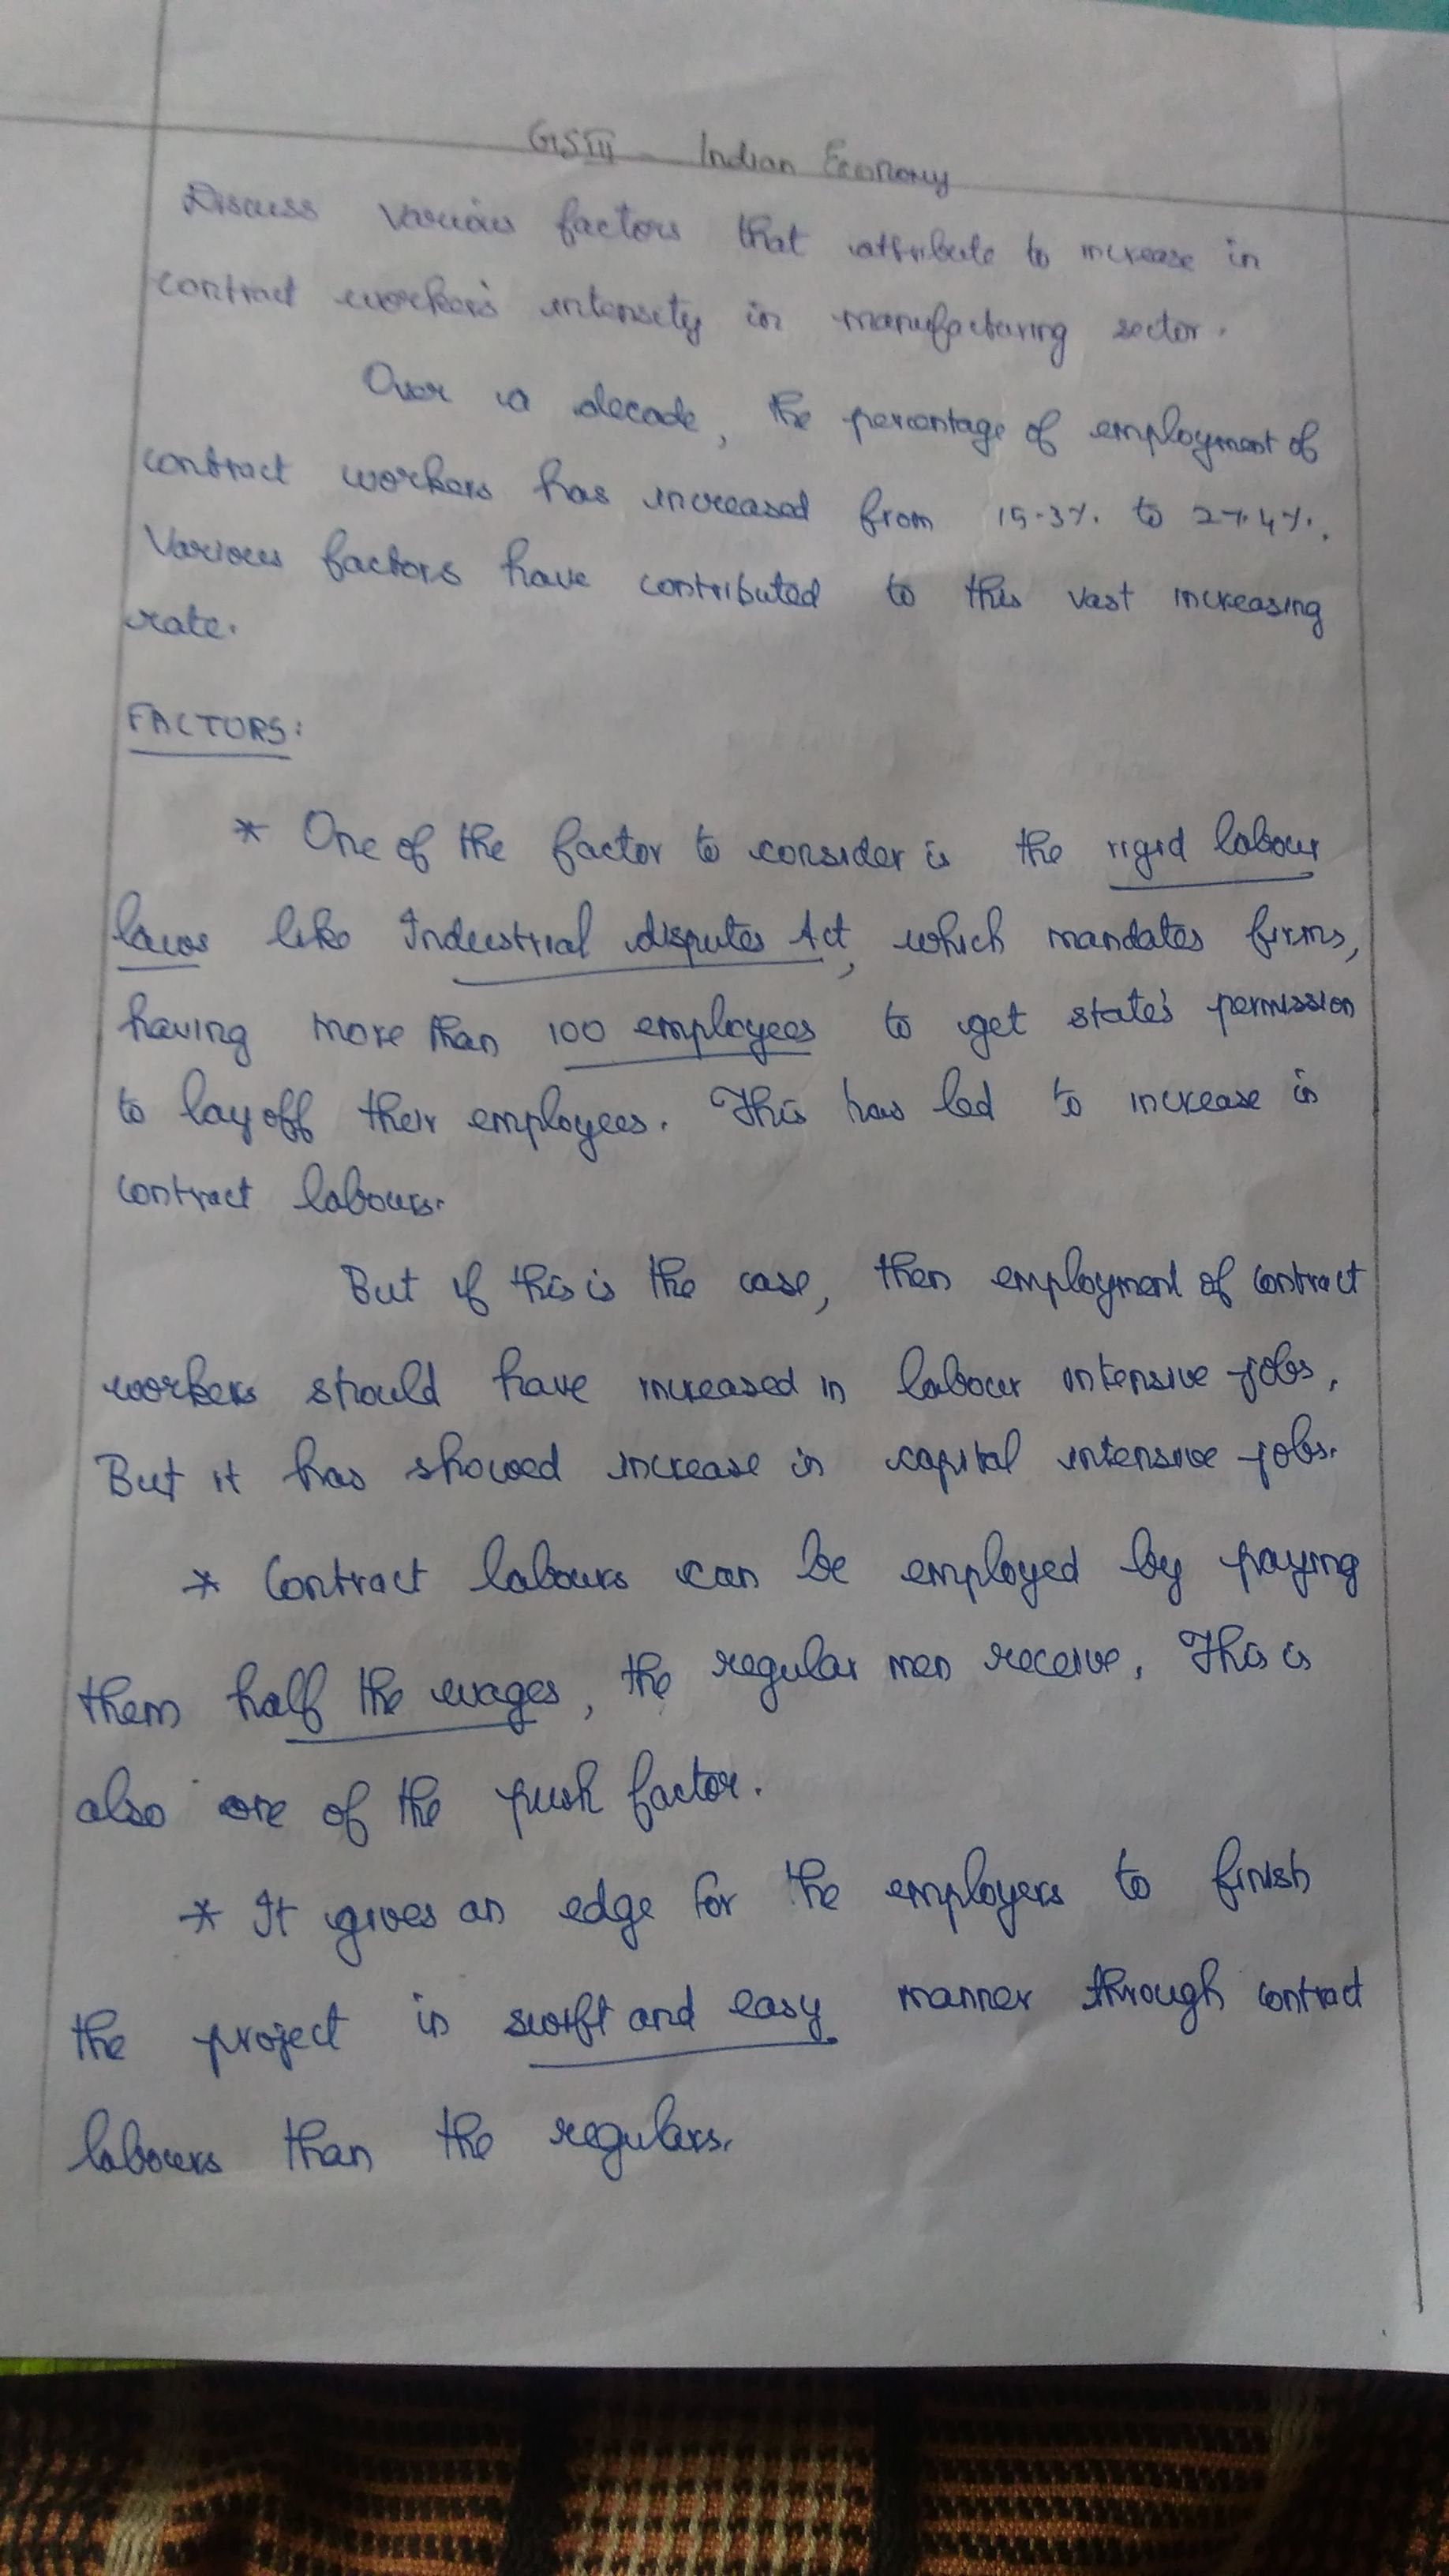 GSIII - Indian Economy
Discuss various factors that attribute to increase in
contract worker's intensity in manufacturing sector.
Over a decade, the percentage of employment of
contract workers has increased from 15.3% to 27.4%.
Various factors have contributed to this vast increasing
rate.
FACTORS:
* One of the factor to consider is the rigid labour
laws like Industrial disputes Act, which mandates firms,
having more than 100 employees to get state's permission
to lay off their employees. This has led to increase in
contract labours.
But if this is the case, then employment of contract
workers should have increased in labour intensive jobs,
But it has showed increase in capital intensive jobs.
* Contract labours can be employed by paying
them half the wages, the regular men receive, This is
also one of the push factor.
* It gives an edge for the employers to finish
the project in swift and easy manner through contract
labours than the regulars.